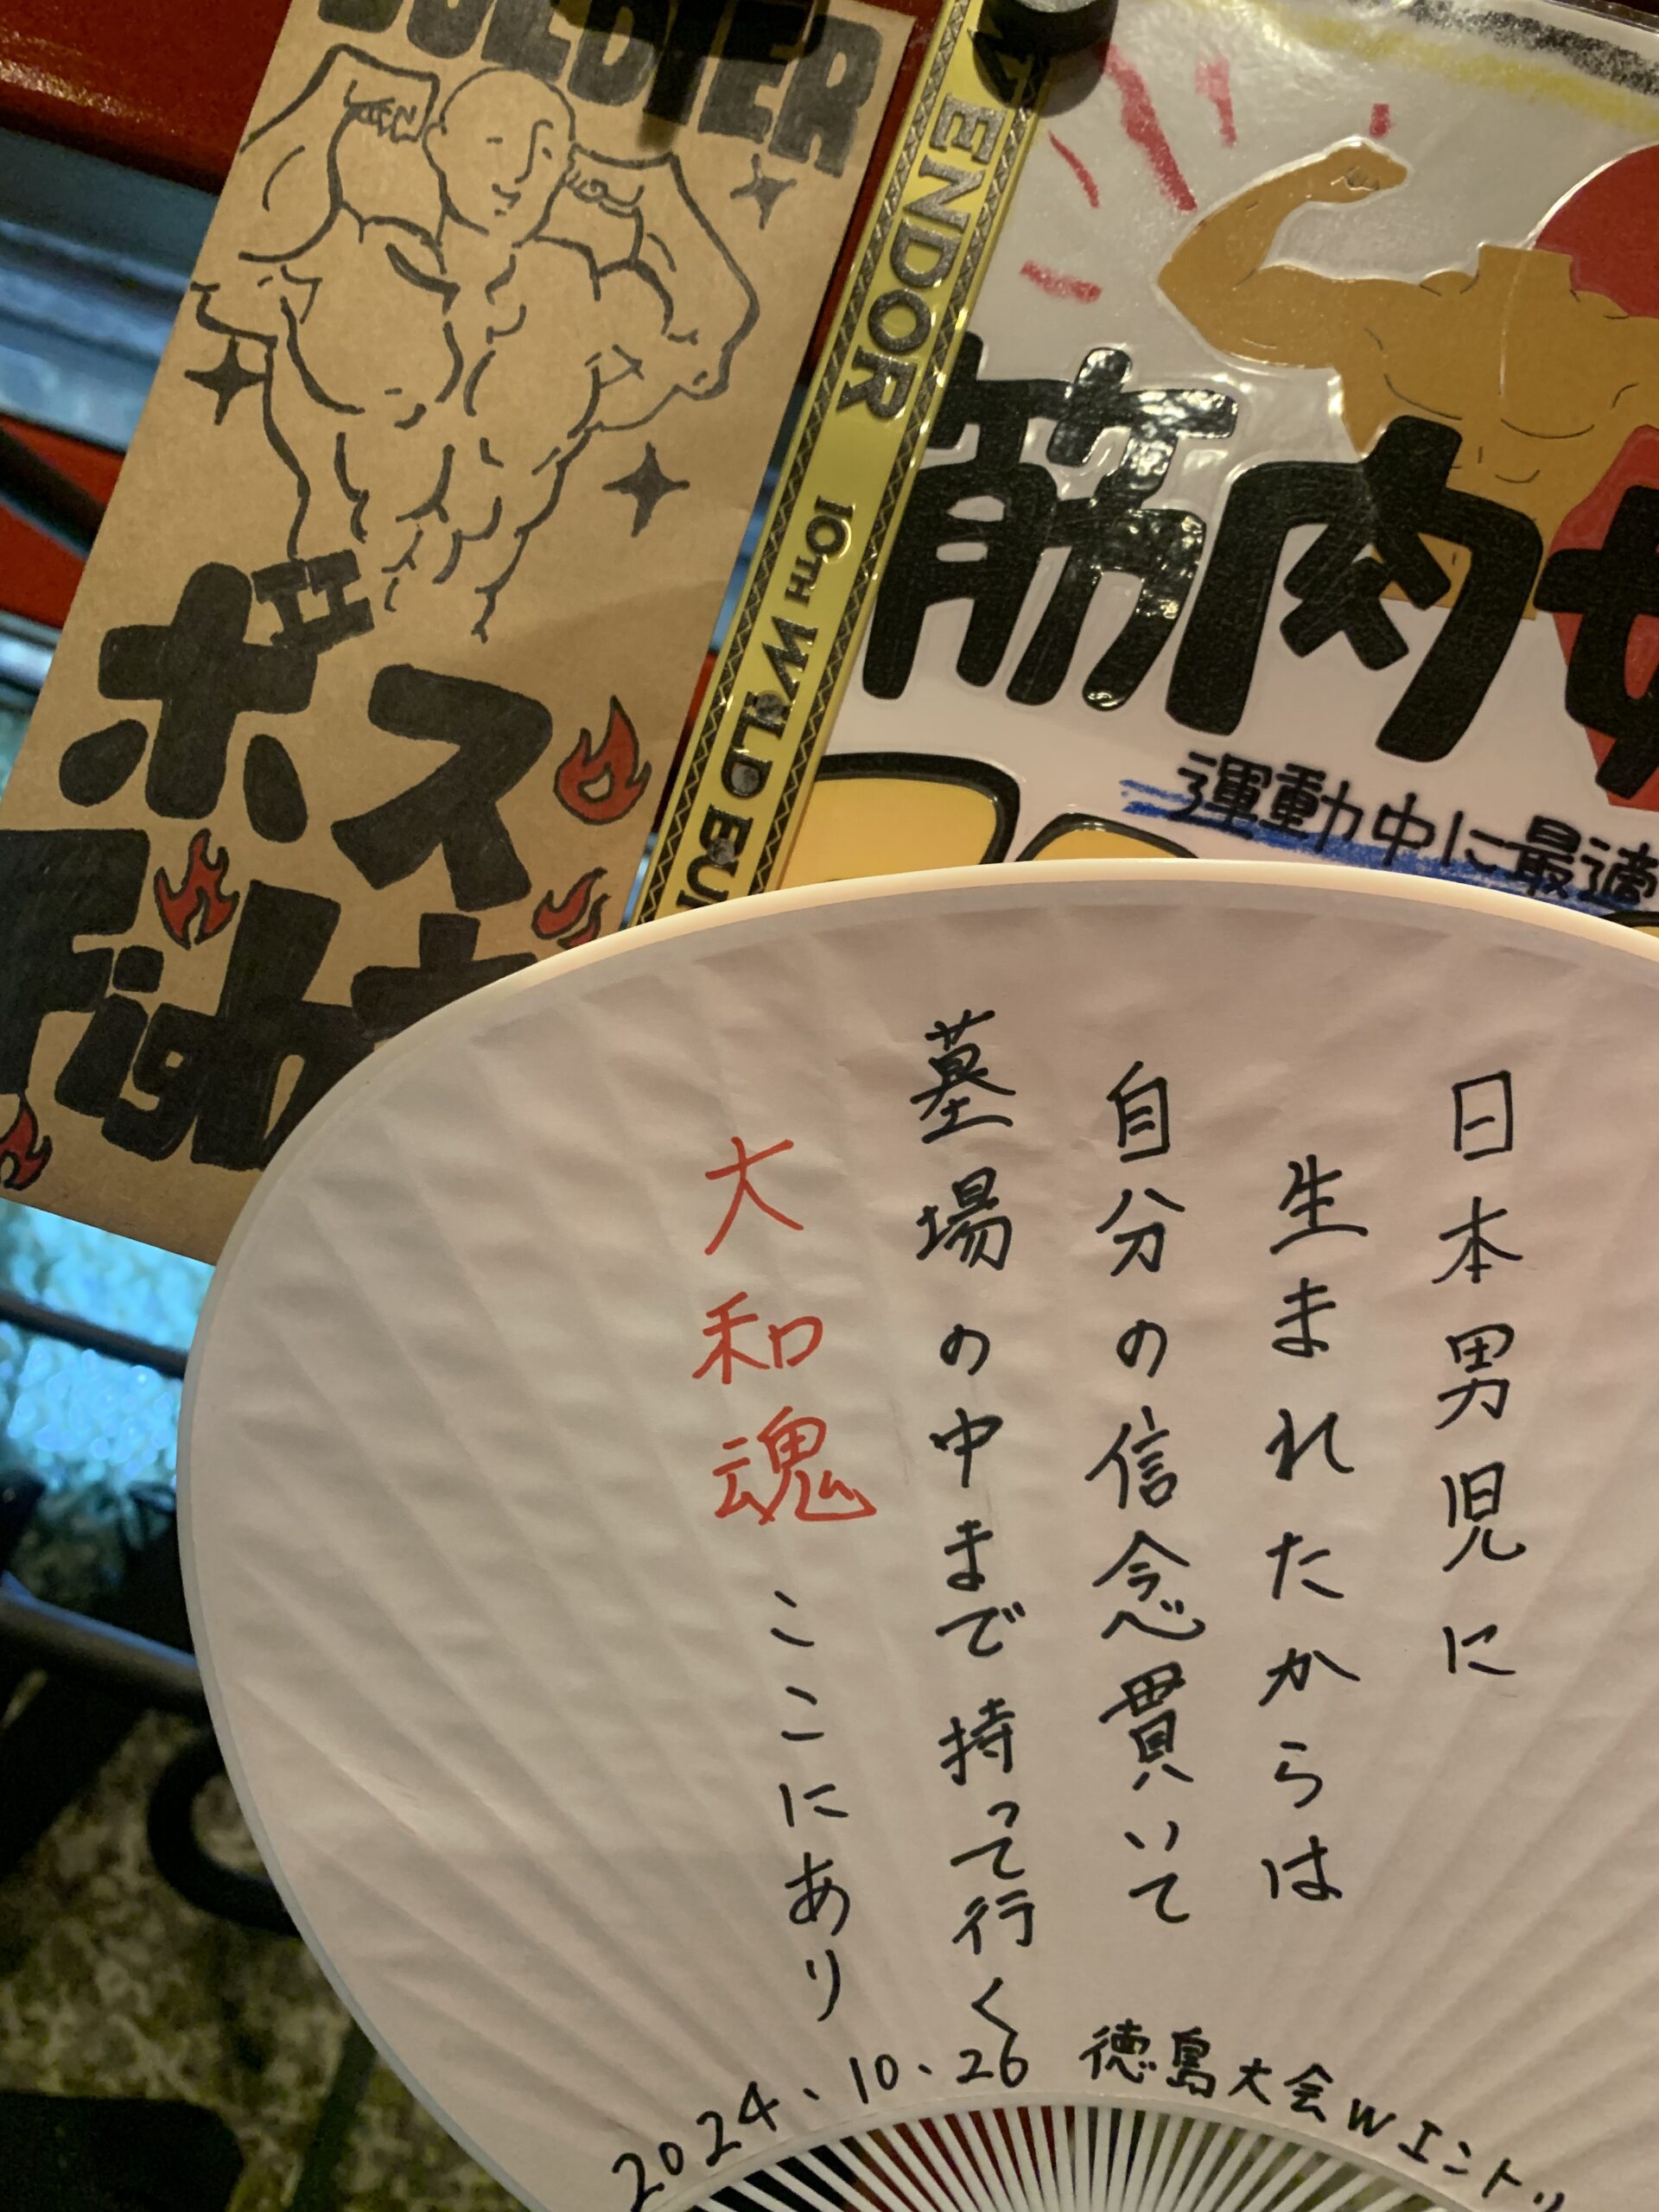 SOLDIER
ボス
Figh
ENDOR 10TH WORLD BU
筋肉
運動中に最適
日本男児に
生まれたからは
自分の信念貫いて
墓場の中まで持って行く
大和魂 ここにあり
2024、10、26 徳島大会Wエントッ